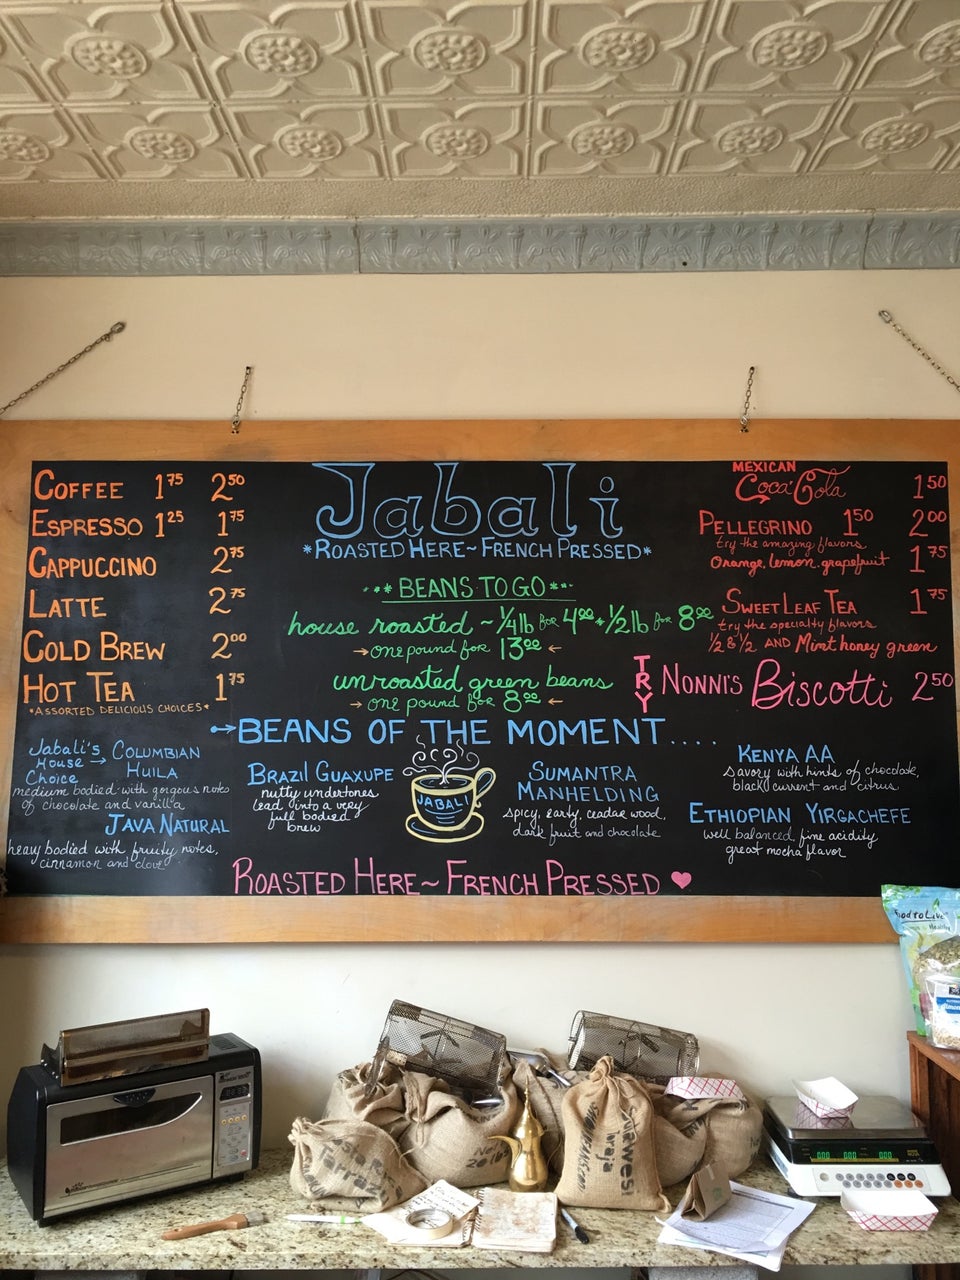 COFFEE 1.75 2.50
ESPRESSO 1.25 1.75
CAPPUCCINO 2.75
LATTE 2.75
COLD BREW 2.00
HOT TEA 1.75
*ASSORTED DELICIOUS CHOICES*
Jabali
*ROASTED HERE~FRENCH PRESSED*
**BEANS TO GO**
house roasted ~ 1/4 lb for 4.00 * 1/2 lb for 8.00
→one pound for 13.00←
unroasted green beans
→one pound for 8.00←
MEXICAN
Coca-Cola 1.50
PELLEGRINO 1.50 2.00
try the amazing flavors
Orange, lemon, grapefruit 1.75
SWEET LEAF TEA 1.75
try the specialty flavors
1/2 & 1/2 AND Mint honey green
TRY NONNI'S Biscotti 2.50
↔BEANS OF THE MOMENT....
Jabali's House Choice → COLUMBIAN HUILA
medium bodied with gorgous notes
of chocolate and vanilla
JAVA NATURAL
heavy bodied with fruity notes,
cinnamon and clove
BRAZIL GUAXUPE
nutty undertones
lead into a very
full bodied
brew
JABALI
SUMANTRA
MANHELDING
spicy, earty, ceadar wood,
dark fruit and chocolate
KENYA AA
savory with hints of chocolate,
black current and citrus
ETHIOPIAN YIRGACHEFE
well balanced, fine acidity
great mocha flavor
ROASTED HERE~FRENCH PRESSED ♥
SULAWESI